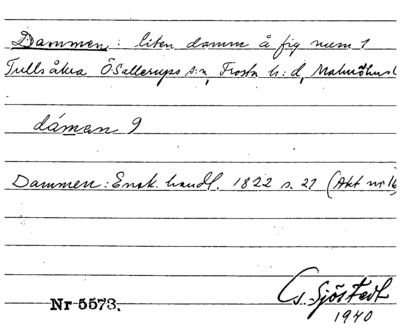 Dammen: liten damm å fig num 1
Tullsåkra Ö Sallerups s:n, Frosta h:d, Malmöhus l
dáman 9
Dammen: Ensk. handl. 1822 s. 27 (Akt nr 16
Nr 5573.
G. Sjöstedt
1940